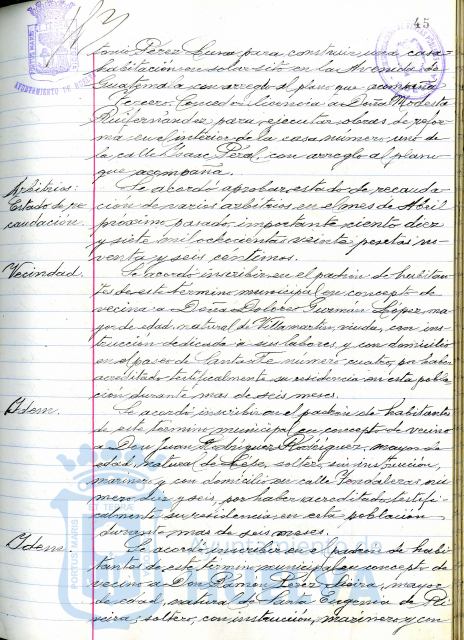 45
tonio Pérez Luna para construir una casa
habitación en solar sito en la Avenida de
Guatemala con arreglo al plano que acompaña
Tercero: Conceder licencia a Doña Modesta
Ruifernández para ejecutar obras de refor
ma en el interior de la casa número uno de
la calle Isaac Peral, con arreglo al plano
que acompaña.
Arbitrios: Se acordó aprobar estado de recauda
Estado de re ción de varios arbitrios en el mes de Abril
caudación. próximo pasado, importante ciento diez
y siete mil ochocientas veinte pesetas no
venta y seis céntimos.
Vecindad. Se acordó inscribir en el padrón de habitan
tes de este término municipal en concepto de
vecina a Doña Dolores Guzman López, ma
yor de edad, natural de Villamartin, viuda, con ins
trucción dedicada a sus labores y con domicilio
en el paseo de Santa Fé número cuatro, por haber
acreditado testificalmente su residencia en esta pobla
ción durante mas de seis meses.
Idem. Se acordó inscribir en el padrón de habitantes
de este término municipal en concepto de vecino
a Don Juan Rodriguez Rodríguez, mayor de
edad, natural de Lepe, soltero, sin instrucción,
marinero y con domicilio en calle Fondaleras nú
mero diez y seis, por haber acreditado testifi-
calmente su residencia en esta población
durante mas de seis meses.
Idem. Se acordó inscribir en el padrón de habi
tantes de este término municipal en concepto de
vecino a Don Ramón Pérez, mayor
de edad, natural de Santa Eugenia de Ri
veira; soltero, con instrucción, marinero y con
PORTUS MARIS
ET TERRAE
Ayuntamiento de
HUELVA